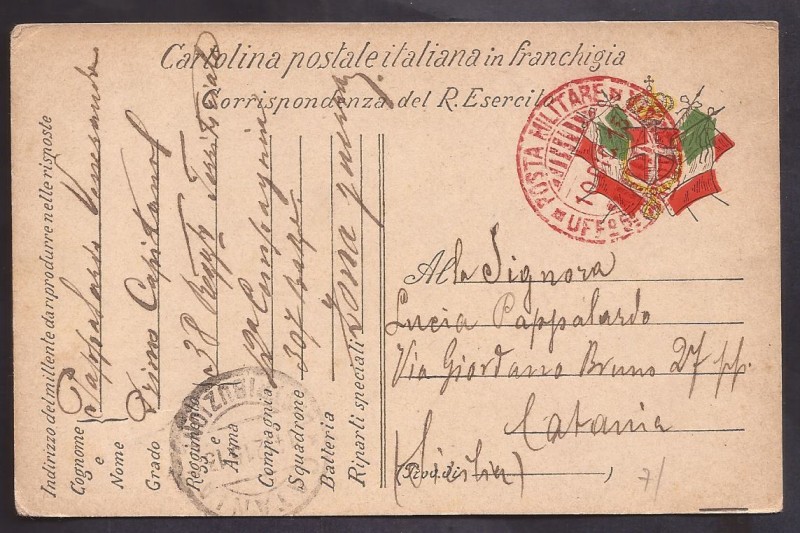 Cartolina postale italiana in franchigia
Corrispondenza del R. Esercito
POSTA MILITARE
UFF°
Alla Signora
Lucia Pappalardo
Via Giordano Bruno 27 pp.
Catania
(Prov. di
(Sicilia)
7/
Indirizzo del mittente da riprodurre nelle risposte
Cognome e Nome Pappalardo Venerando
Grado Primo Capitano
Reggimento e Arma 38 Regg. Territoriale
Compagnia 12a Compagnia
Squadrone 307
Batteria
Riparti speciali Zona guerra